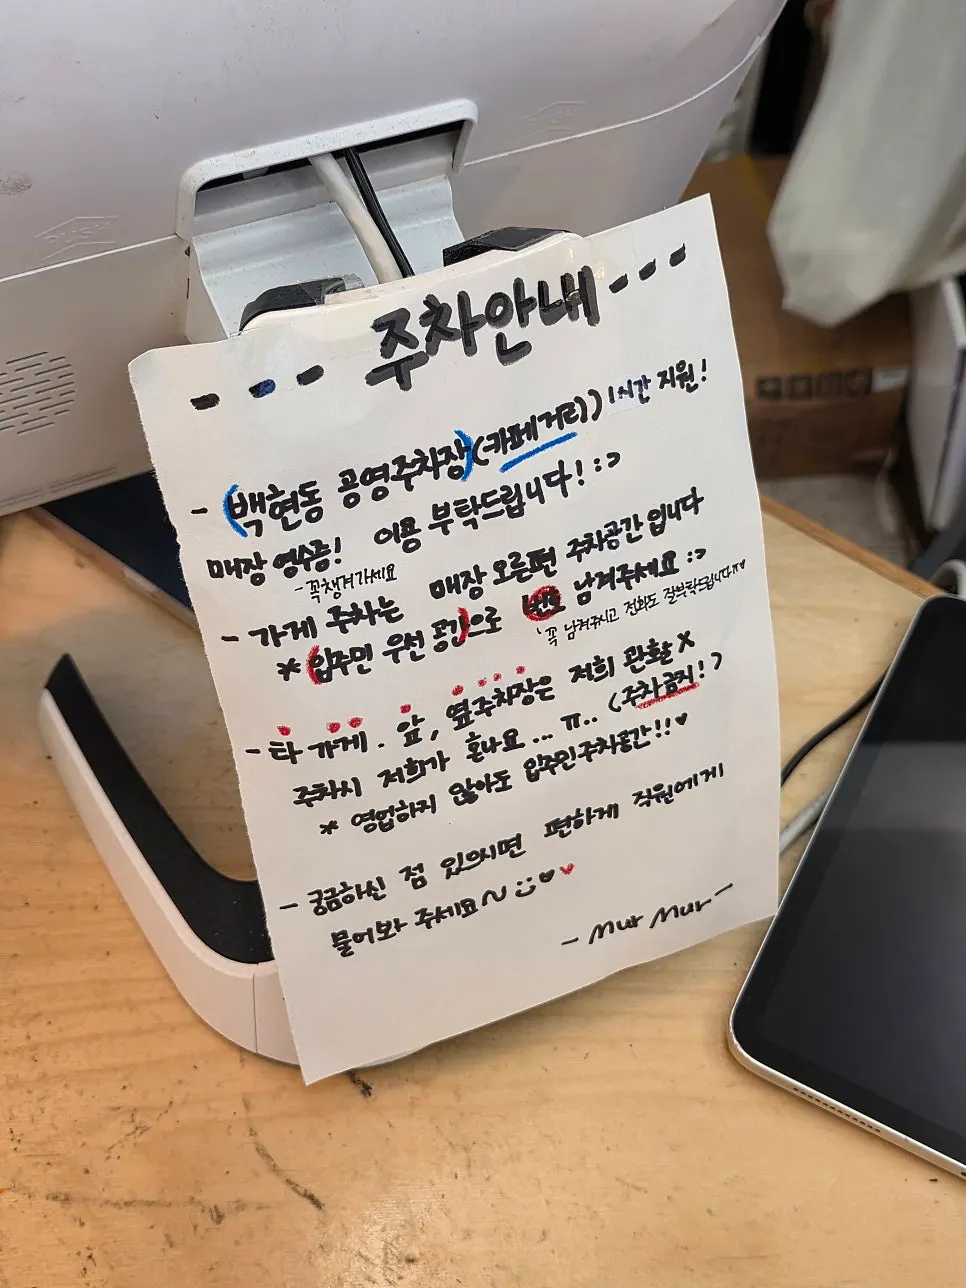 PUSH
- - - 주차안내 - - -
- (백현동 공영주차장)(카페거리) 1시간 지원!
매장 영수증! 이용 부탁드립니다! :>
- 꼭 챙겨가세요
- 가게 주차는 매장 오른편 주차공간 입니다
* (입주민 우선 공간)으로 번호 남겨주세요 :>
꼭 남겨주시고 전화도 잘부탁드립니다ㅠㅠ
- 타 가게. 앞, 옆주차장은 저희 관할 X
주차시 저희가 혼나요... ㅠ.. (주차금지!)
* 영업하지 않아도 입주민주차공간!! ♥
- 궁금하신 점 있으시면 편하게 직원에게
물어봐 주세요~ :) ♥ ♥
- Mur Mur -